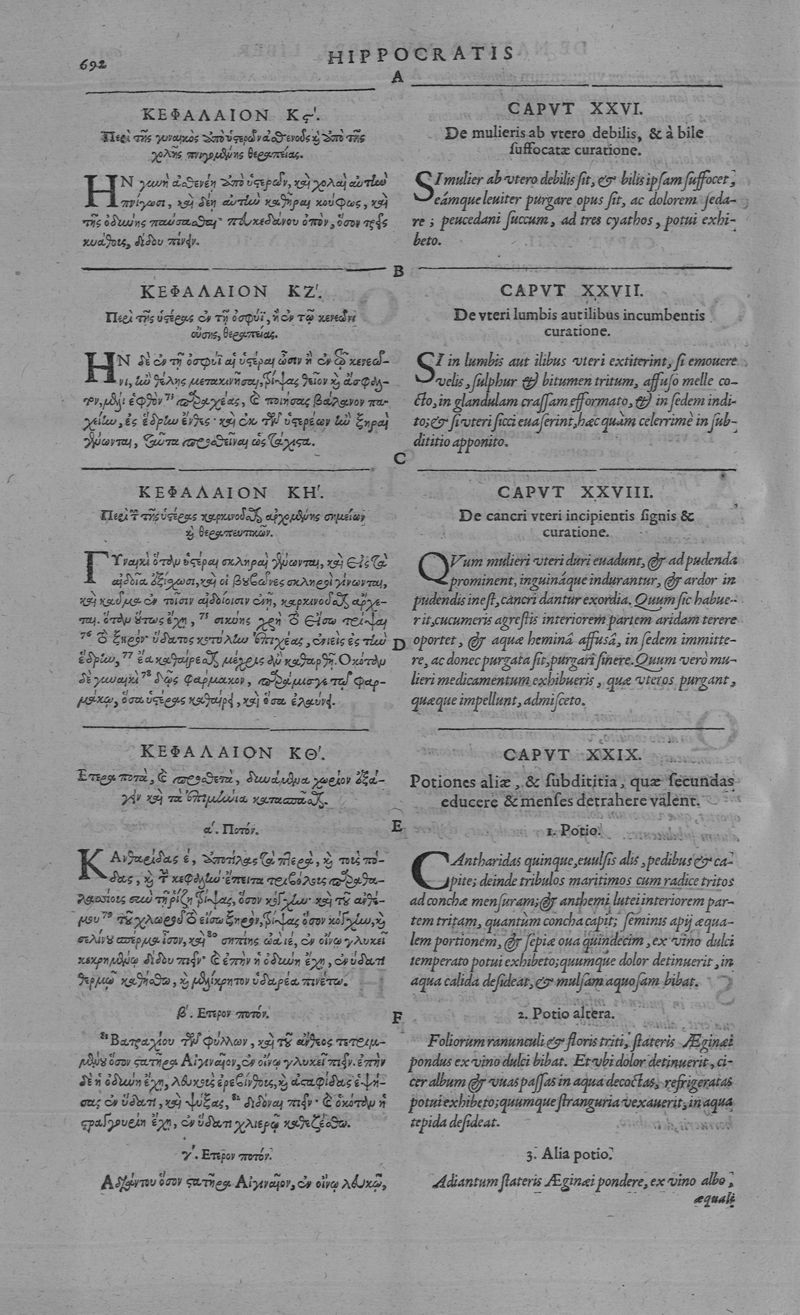 692
HIPPOCRATIS
A
ΚΕΦΑΛΑΙΟΝ Κϛ΄.
Περὶ τῆς γυναικὸς ἀπὸ ὑστερῶν ἀσθενοῦς καὶ ἀπὸ τῆς
χολῆς πνιγομένης θεραπείας.
ΗΝ γυνὴ ἀσθενέῃ ἀπὸ ὑστερῶν, καὶ χολαὶ αὐτὴν
πνίγωσι, καὶ δέῃ αὐτὴν καθῆραι κούφως, καὶ
τῆς ὀδύνης παύσασθαι· πευκεδάνου ὀπὸν, ὅσον τρεῖς
κυάθοις, δίδου πίνειν.
B
ΚΕΦΑΛΑΙΟΝ ΚΖ΄.
Περὶ τῆς ὑστέρας ἐν τῇ ὀσφύϊ, ἢ ἐν τῷ κενεῶνι
οὔσης, θεραπείας.
ΗΝ δὲ ἐν τῇ ὀσφύϊ αἱ ὑστέραι ὦσιν ἢ ἐν τῷ κενεῶ-
νι, ἢν θέλῃς μετακινῆσαι, τρίψας θεῖον καὶ ἄσφαλ-
τον, μέλι ἑφθὸν 73 παραχέας, καὶ ποιήσας βάλανον πα-
χείην, ἐς ἕδρην ἔνθες· καὶ ἐκ τῶν ὑστερέων ἢν ξηραὶ
γένωνται, ταῦτα προσθεῖναι ὡς τάχιστα.
C
ΚΕΦΑΛΑΙΟΝ ΚΗ΄.
Περὶ τῆς ὑστέρας καρκινοῦσθαι ἀρχομένης σημείων
καὶ θεραπευτικῶν.
ΓΥναικὶ ὅταν ὑστέραι σκληραὶ γένωνται, καὶ εἰς τὰ
αἰδοῖα ἐξίωσι, καὶ οἱ βουβῶνες σκληροὶ γίνωνται,
καὶ καῦμα ἐν τοῖσιν αἰδοίοισιν ἐνῇ, καρκινοῦσθαι ἄρχε-
ται. ὅταν οὕτως ἔχῃ, 75 σικύης χρὴ τὸ εἴσω τρίψαι
76 τὸ ξηρὸν· ὕδατος κοτύλην ἐπιχέας, ἐνιεὶς ἐς τὴν
ἕδρην, 77 ἔα καθαίρεσθαι μέχρις ἂν καθαρθῇ. Ὁκόταν
δὲ γυναικὶ 78 δῷς φάρμακον, παράμισγε τῷ φαρ-
μάκῳ, ὅσα ὑστέρας καθαίρῃ, καὶ ὅσα ἐλαύνῃ.
D
ΚΕΦΑΛΑΙΟΝ ΚΘ΄.
Ἕτερα ποτὰ, καὶ προσθετὰ, δυνάμενα χωρίον ἐξά-
γειν καὶ τὰ ἐπιμήνια κατασπᾶσθαι.
E
α΄. Ποτόν.
ΚΑνθαρίδας έ, ἀποτίλας τὰ πτερὰ, καὶ τοὺς πό-
δας, καὶ τὴν κεφαλήν· ἔπειτα τριβόλους παραθα-
λασσίους σὺν τῇ ῥίζῃ τρίψας, ὅσον κόγχην· καὶ τοῦ ἀνθέ-
μου 79 τοῦ χλωροῦ τὸ εἴσω ξηρὸν, τρίψας ὅσον κόγχην, καὶ
σελίνου σπέρμα ἶσον, καὶ 80 σηπίης ὠὰ ιέ, ἐν οἴνῳ γλυκεῖ
κεκρημένῳ δίδου πιεῖν· καὶ ἐπὴν ἡ ὀδύνη ἔχῃ, ἐν ὕδατι
θερμῷ καθήσθω, καὶ μελίκρητον ὑδαρέα πινέτω.
β΄. Ἕτερον ποτόν.
F
81 Βατραχίου τῶν φύλλων, καὶ τοῦ ἄνθεος τετριμ-
μένου ὅσον στατῆρα Αἰγιναῖον, ἐν οἴνῳ γλυκεῖ πιεῖν. ἐπὴν
δὲ ἡ ὀδύνη ἔχῃ, λευκοὺς ἐρεβίνθους, καὶ ἀσταφίδας ἑψή-
σας ἐν ὕδατι, καὶ ψύξας, 82 διδόναι πιεῖν· καὶ ὁκόταν ἡ
στραγγουρίη ἔχῃ, ἐν ὕδατι χλιερῷ καθεζέσθω.
γ΄. Ἕτερον ποτόν.
Ἀδιάντου ὅσον στατῆρα Αἰγιναῖον, ἐν οἴνῳ λευκῷ,
CAPVT XXVI.
De mulieris ab vtero debilis, & à bile
suffocatæ curatione.
SI mulier ab vtero debilis sit, & bilis ipsam suffocet,
eámque leuiter purgare opus sit, ac dolorem seda-
re; peucedani succum, ad tres cyathos, potui exhi-
beto.
CAPVT XXVII.
De vteri lumbis aut ilibus incumbentis
curatione.
SI in lumbis aut ilibus vteri extiterint, si emouere
velis, sulphur & bitumen tritum, affuso melle co-
cto, in glandulam crassam efformato, & in sedem indi-
to; & si vteri sicci euaserint, hæc quàm celerrimè in sub-
dititio apponito.
CAPVT XXVIII.
De cancri vteri incipientis signis &
curatione.
QVum mulieri vteri duri euadunt, & ad pudenda
prominent, inguináque indurantur, & ardor in
pudendis inest, cancri dantur exordia. Quum sic habue-
rit, cucumeris agrestis interiorem partem aridam terere
oportet, & aquæ heminâ affusâ, in sedem immitte-
re, ac donec purgata sit, purgari sinere. Quum verò mu-
lieri medicamentum exhibueris, quæ vteros purgant,
quæque impellunt, admisceto.
CAPVT XXIX.
Potiones aliæ, & subdititia, quæ secundas
educere & menses detrahere valent.
1. Potio.
CAntharidas quinque, euulsis alis, pedibus & ca-
pite; deinde tribulos maritimos cum radice tritos
ad conchæ mensuram; & anthemi lutei interiorem par-
tem tritam, quantùm concha capit; seminis apij æqua-
lem portionem, & sepiæ oua quindecim, ex vino dulci
temperato potui exhibeto; quumque dolor detinuerit, in
aqua calida desideat, & mulsam aquosam bibat.
2. Potio altera.
Foliorum ranunculi & floris triti, stateris Æginæi
pondus ex vino dulci bibat. Et vbi dolor detinuerit, ci-
cer album & vuas passas in aqua decoctas, refrigeratas
potui exhibeto; quumque stranguria vexauerit, in aqua
tepida desideat.
3. Alia potio.
Adiantum stateris Æginæi pondere, ex vino albo,
æquali